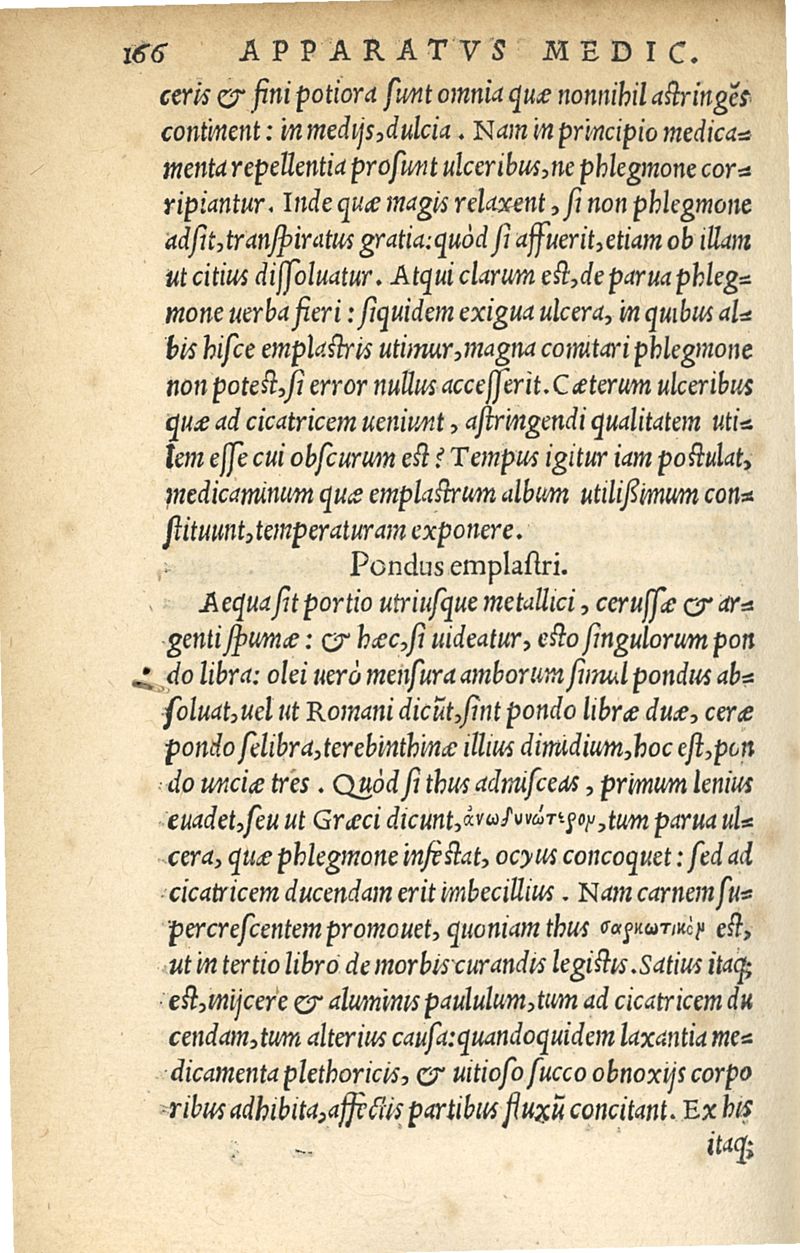 166 APPARATVS MEDIC.
ceris & fini potiora ſunt omnia quæ nonnihil aſtringẽs
continent: in medijs, dulcia. Nam in principio medica=
menta repellentia proſunt ulceribus, ne phlegmone cor=
ripiantur. Inde quæ magis relaxent, ſi non phlegmone
adſit, tranſpiratus gratia: quòd ſi affuerit, etiam ob illam
ut citius diſſoluatur. Atqui clarum eſt, de parua phleg=
mone uerba fieri: ſiquidem exigua ulcera, in quibus al=
bis hiſce emplaſtris utimur, magna comitari phlegmone
non poteſt, ſi error nullus acceſſerit. Cæterum ulceribus
quæ ad cicatricem ueniunt, aſtringendi qualitatem uti=
lem eſſe cui obſcurum eſt? Tempus igitur iam poſtulat,
medicaminum quæ emplaſtrum album utilißimum con=
ſtituunt, temperaturam exponere.
Pondus emplaſtri.
Aequa ſit portio utriuſque metallici, ceruſſæ & ar=
genti ſpumæ: & hæc, ſi uideatur, eſto ſingulorum pon
do libra: olei uerò menſura amborum ſimul pondus ab=
ſoluat, uel ut Romani dicũt, ſint pondo libræ duæ, ceræ
pondo ſelibra, terebinthinæ illius dimidium, hoc eſt, pon
do unciæ tres. Quòd ſi thus admiſceas, primum lenius
euadet, ſeu ut Græci dicunt, ἀνωδυνώτερον, tum parua ul=
cera, quæ phlegmone infeſtat, ocyus concoquet: ſed ad
cicatricem ducendam erit imbecillius. Nam carnem ſu=
percreſcentem promouet, quoniam thus σαρκωτικὸν eſt,
ut in tertio libro de morbis curandis legiſtis. Satius itaq;
eſt, inijcere & aluminis paululum, tum ad cicatricem du
cendam, tum alterius cauſa: quandoquidem laxantia me=
dicamenta plethoricis, & uitioſo ſucco obnoxijs corpo
ribus adhibita, affectis partibus fluxũ concitant. Ex his
itaq;